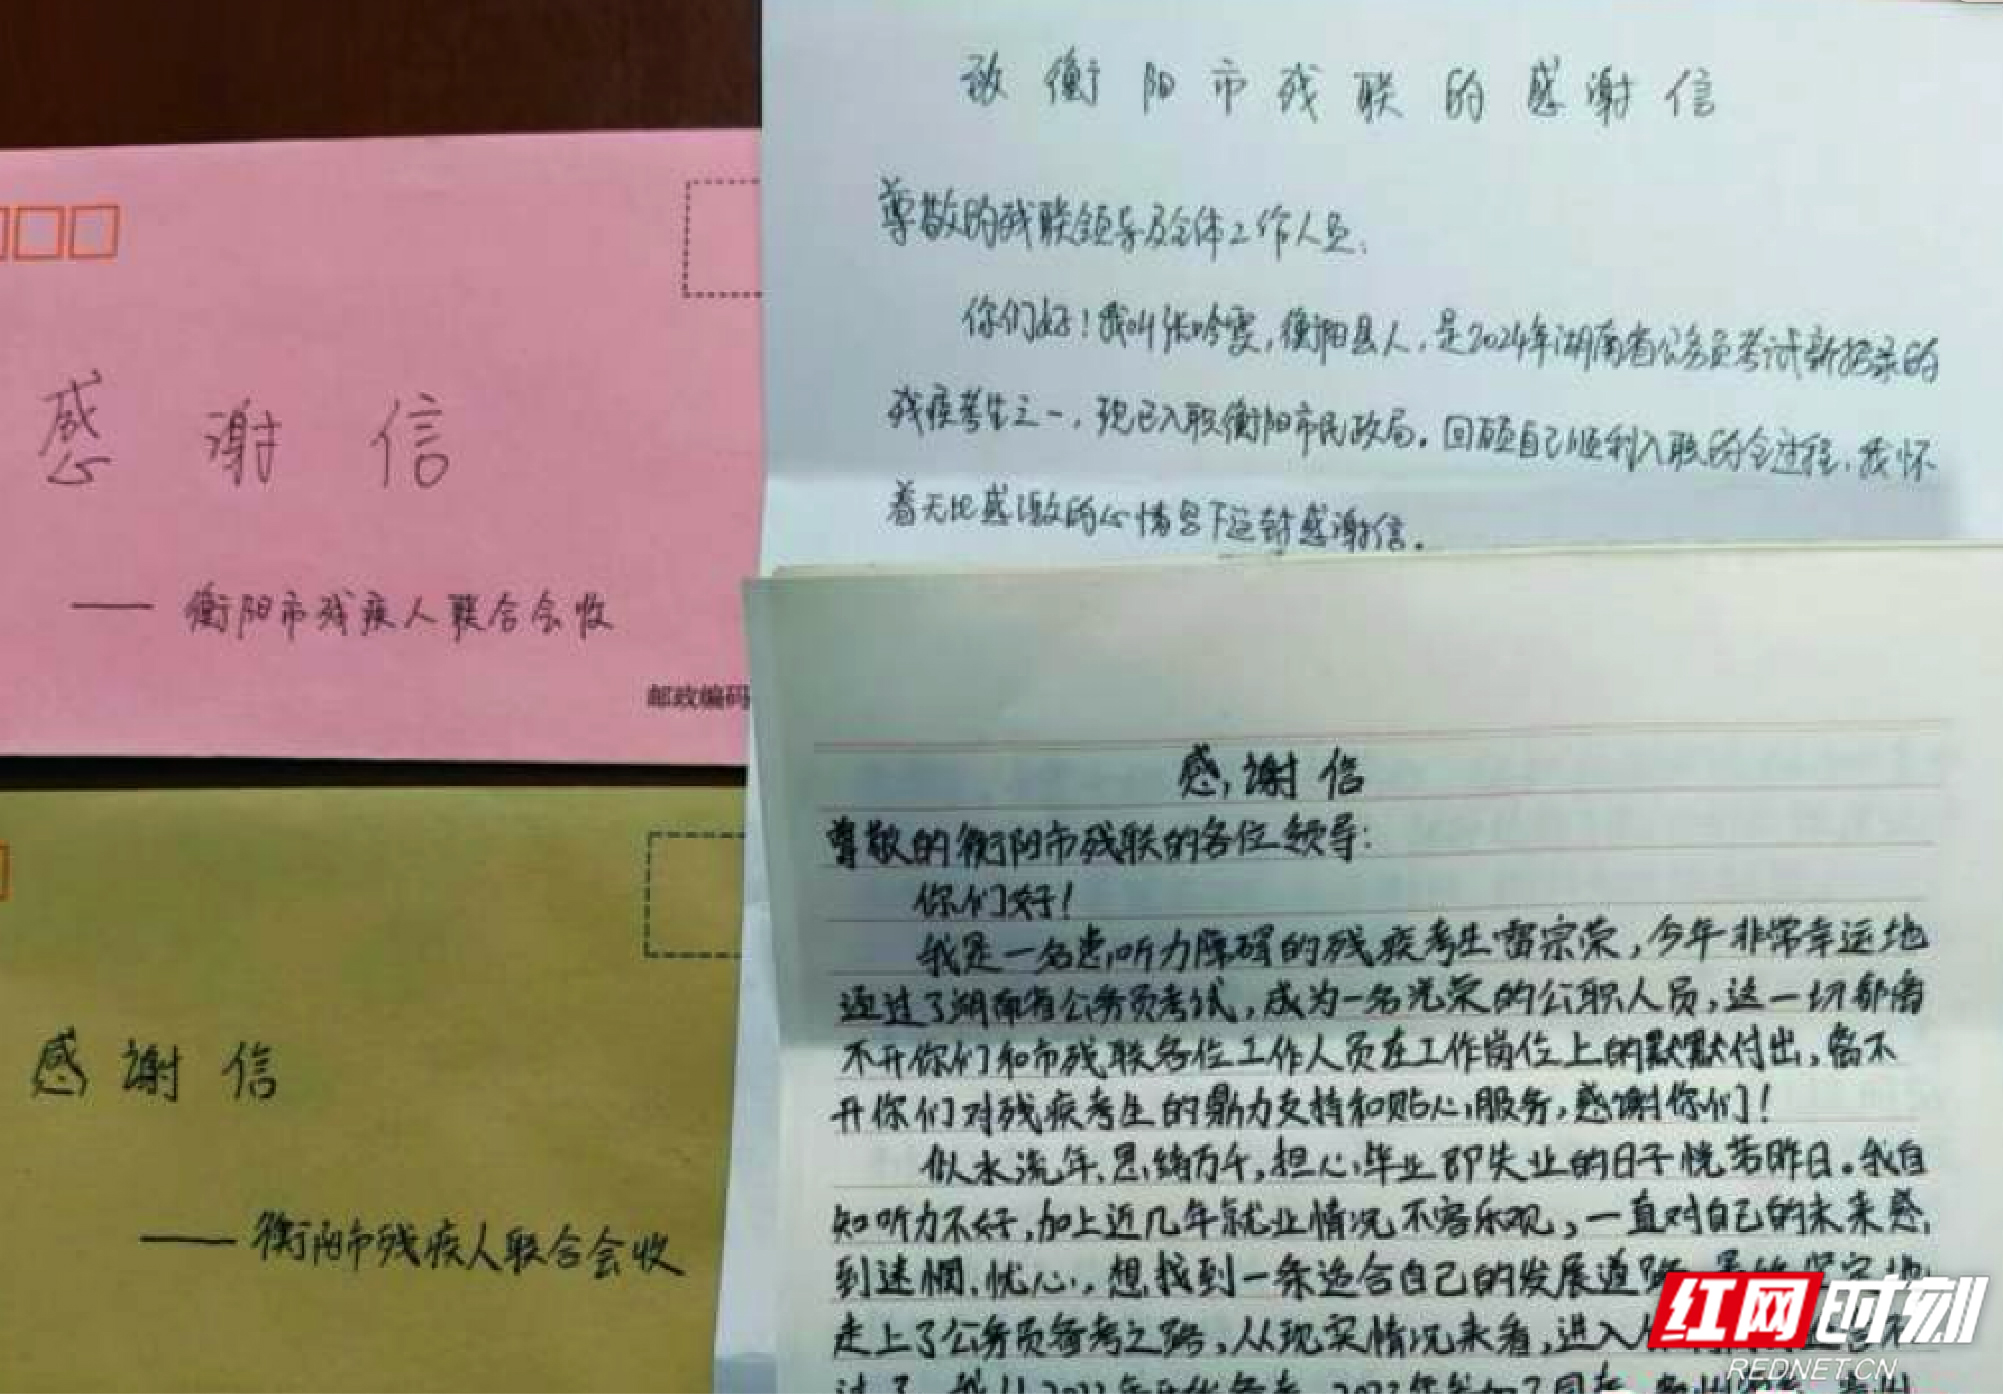 感谢信
——衡阳市残疾人联合会收
邮政编码
感谢信
——衡阳市残疾人联合会收
致衡阳市残联的感谢信
尊敬的残联领导及全体工作人员:
你们好!我叫张吟雯,衡阳县人,是2024年湖南省公务员考试新招录的
残疾考生之一,现已入职衡阳市民政局。回顾自己顺利入职的全过程,我怀
着无比感激的心情写下这封感谢信。
感谢信
尊敬的衡阳市残联的各位领导:
你们好!
我是一名患听力障碍的残疾考生雷宗荣,今年非常幸运地
通过了湖南省公务员考试,成为一名光荣的公职人员,这一切都离
不开你们和市残联各位工作人员在工作岗位上的默默付出,离不
开你们对残疾考生的鼎力支持和贴心服务,感谢你们!
似水流年、思绪万千,担心毕业即失业的日子恍若昨日。我自
知听力不好,加上近几年就业情况不容乐观,一直对自己的未来感
到迷惘、忧心,想找到一条适合自己的发展道路
走上了公务员备考之路,从现实情况来看,进入
红网时刻
REDNET.CN